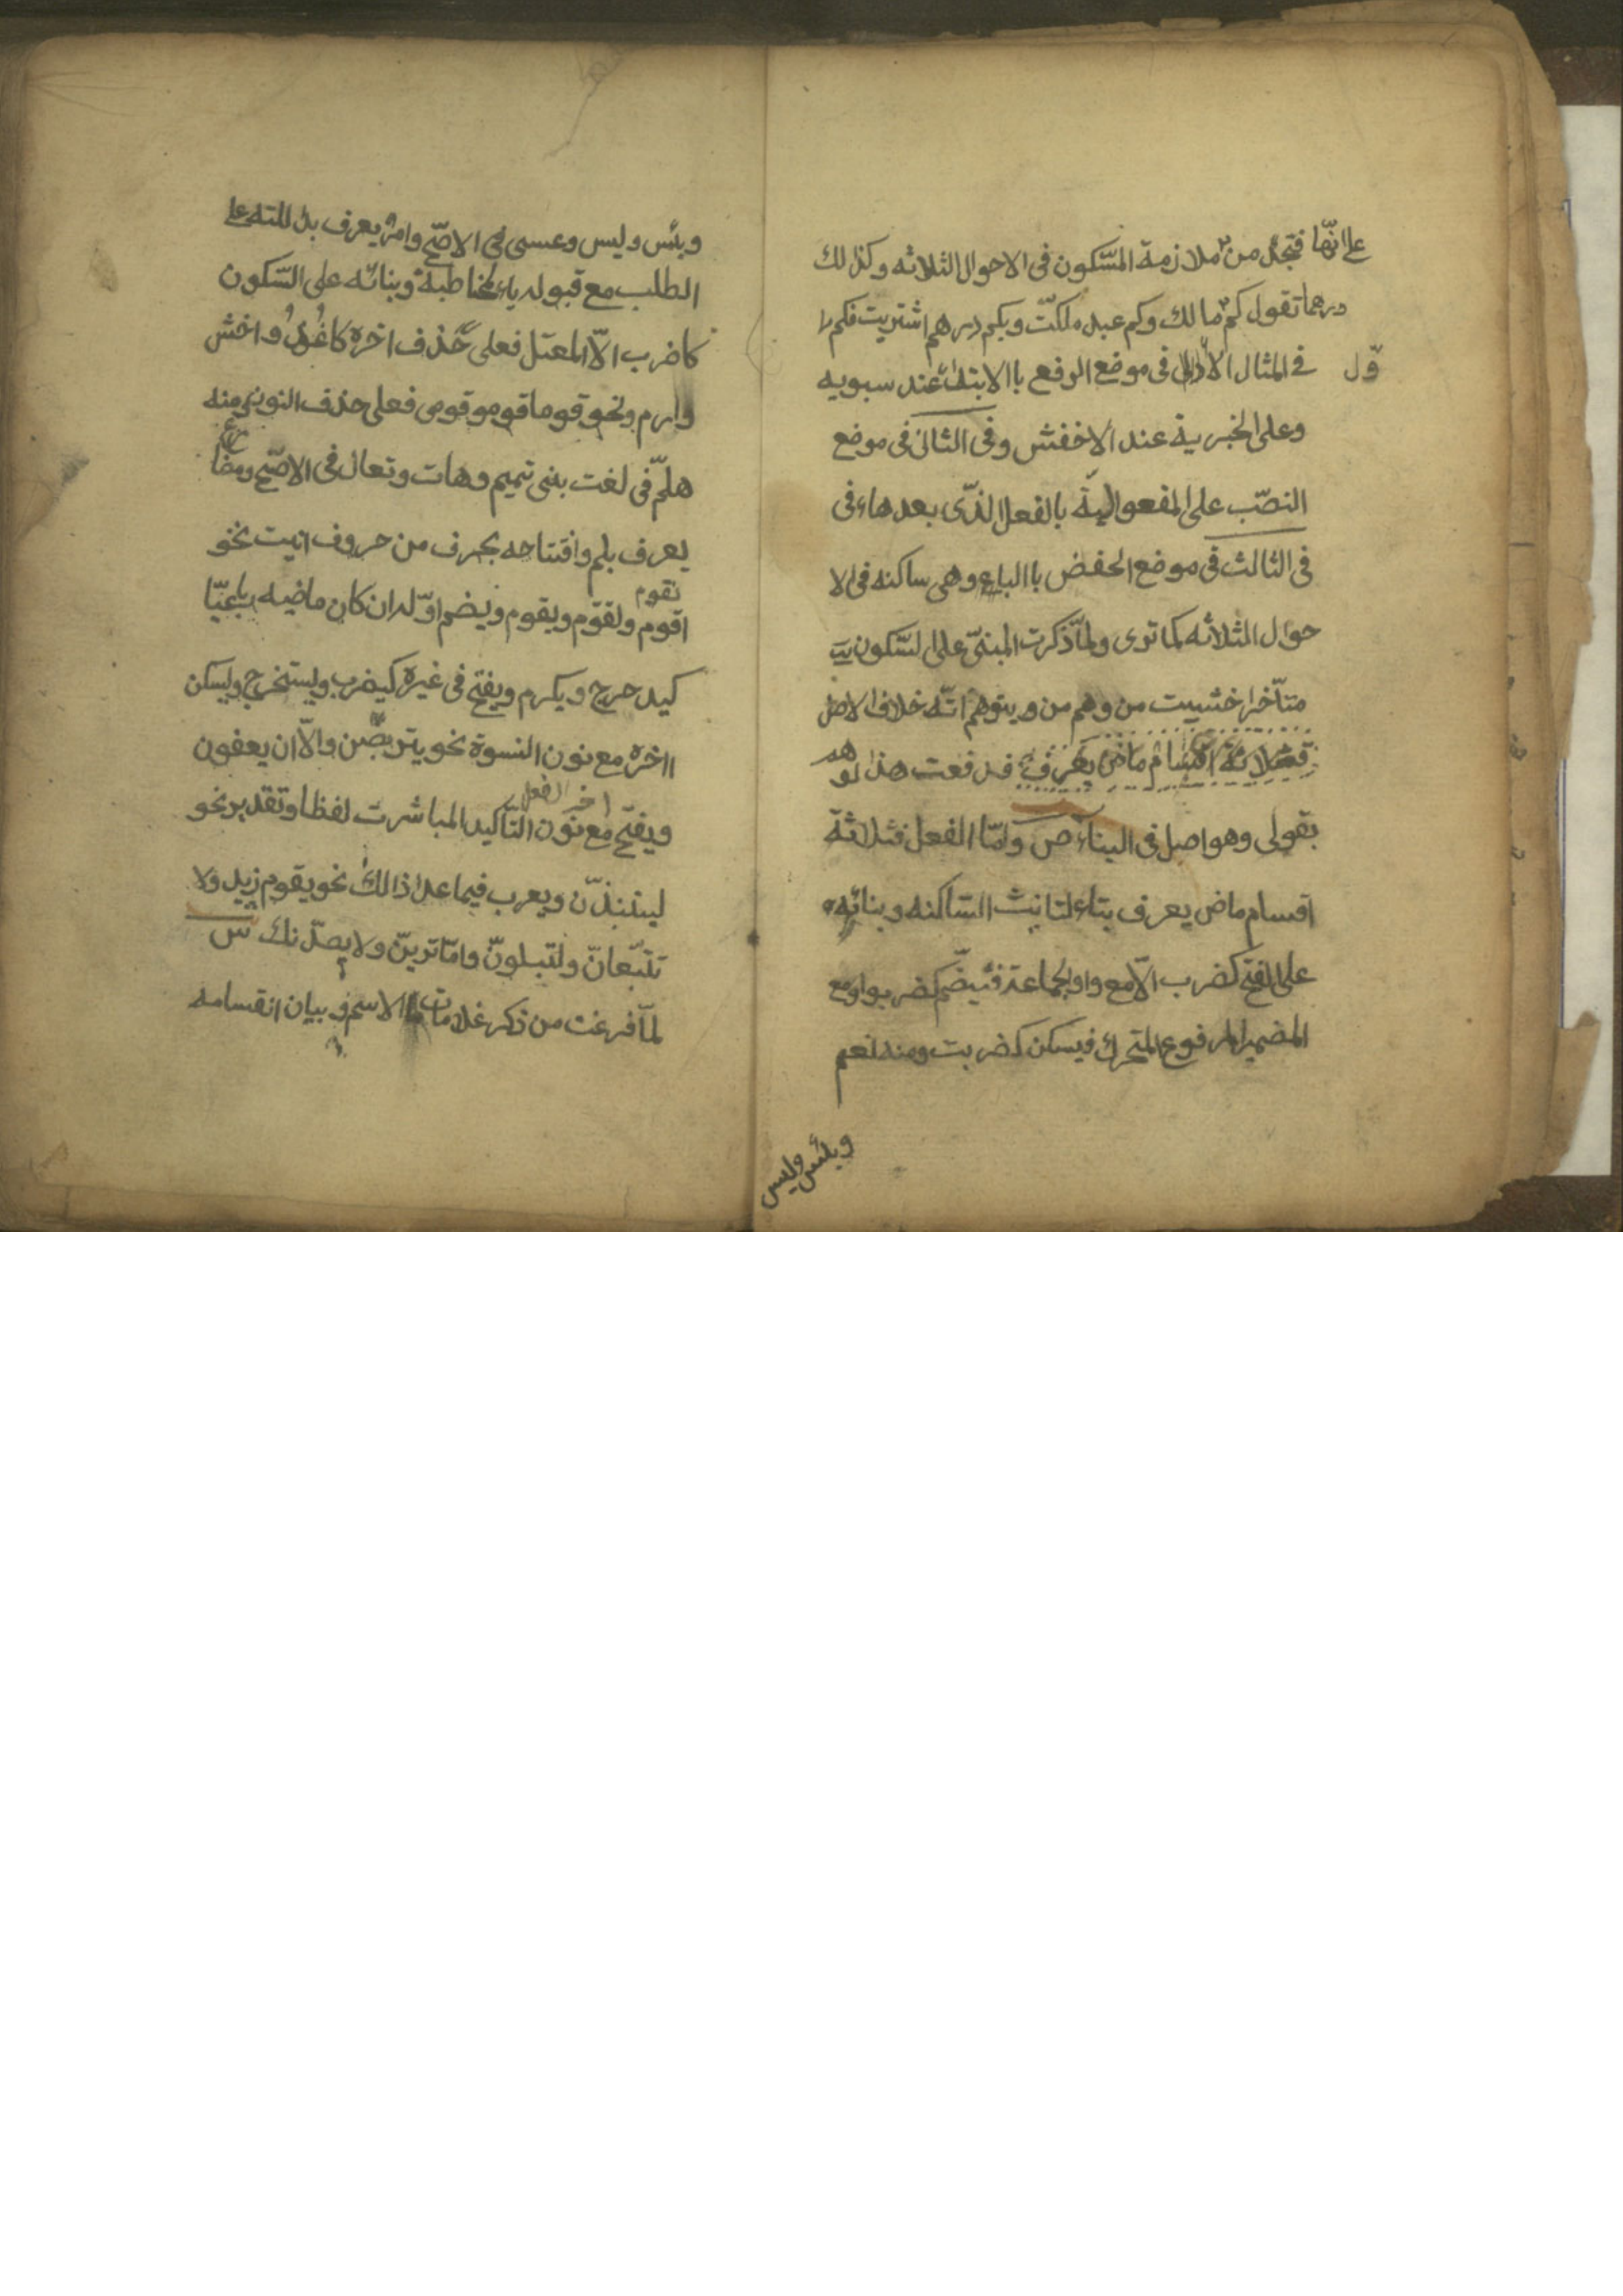 على انها فتجد من ملازمة السّكون فى الاحوال الثلاثه وكذلك
درهما تقول كم مالك وكم عبد ملكت وبكم درهم اشتريت فكم
فى المثال الاول فى موضع الرفع باالابتداء عند سبويه
وعلى الخبرية عند الاخفش وفى الثانى فى موضع
النصّب على المفعولية بالفعل الذّى بعدها فى
فى الثالث فى موضع الحفض باالباء وهى ساكنه فى الا
حوال الثلاثه كما ترى ولمّا ذكرت المبنىّ على السّكون
متأخرا خشييت من وهم من ويتوهم انّه خلاف الاصل
فثلاثة اقسام ماض يعرف فدفعت هذا لوهم
بقولى وهو اصل فى البناء ص وامّا الفعل فثلاثة
اقسام ماض يعرف بتاء لتانيث السّاكنه وبنائه
على الفتح كضرب الّا مع واو الجماعة فيضّم كضربوا ومع
المضمير المرفوع المتحرك فيسكن كضربت ومنه نعم
وبئس وليس
وبئس وليس وعسى فى الاصّح وامر يعرف بدلالته على
الطلب مع قبوله ياء لمخاطبة وبنائه على السّكون
كاضرب الّا المعتل فعلى حذف اخره كاغز واخش
وارم ونحو قوما قومو قومى فعلى حذف النون ومنه
هلمّ فى لغت بنى تميم وهات وتعال فى الاصّح ومضارع
يعرف بلم وافتتاحه بحرف من حروف انيت نحو
نقوم
اقوم وتقوم ويقوم ويضم اوّله ان كان ماضيه رباعيّا
كيدحرج ويكرم ويفتح فى غيره كيضرب ويستخرج ويسكن
اخره مع نون النسوة نحو يتربصّن والّا ان يعفون
اخر الفعل
ويفتح مع نون التّاكيد المباشرت لفظا وتقدير نحو
لينبذّن ويعرب فيما عدا ذالك نحو يقوم زيد ولا
تتبّعانّ ولتبلونّ وامّا ترينّ ولا يصدّنك ش
لمّا فرغت من ذكر علامات الاسم وبيان انقسامه